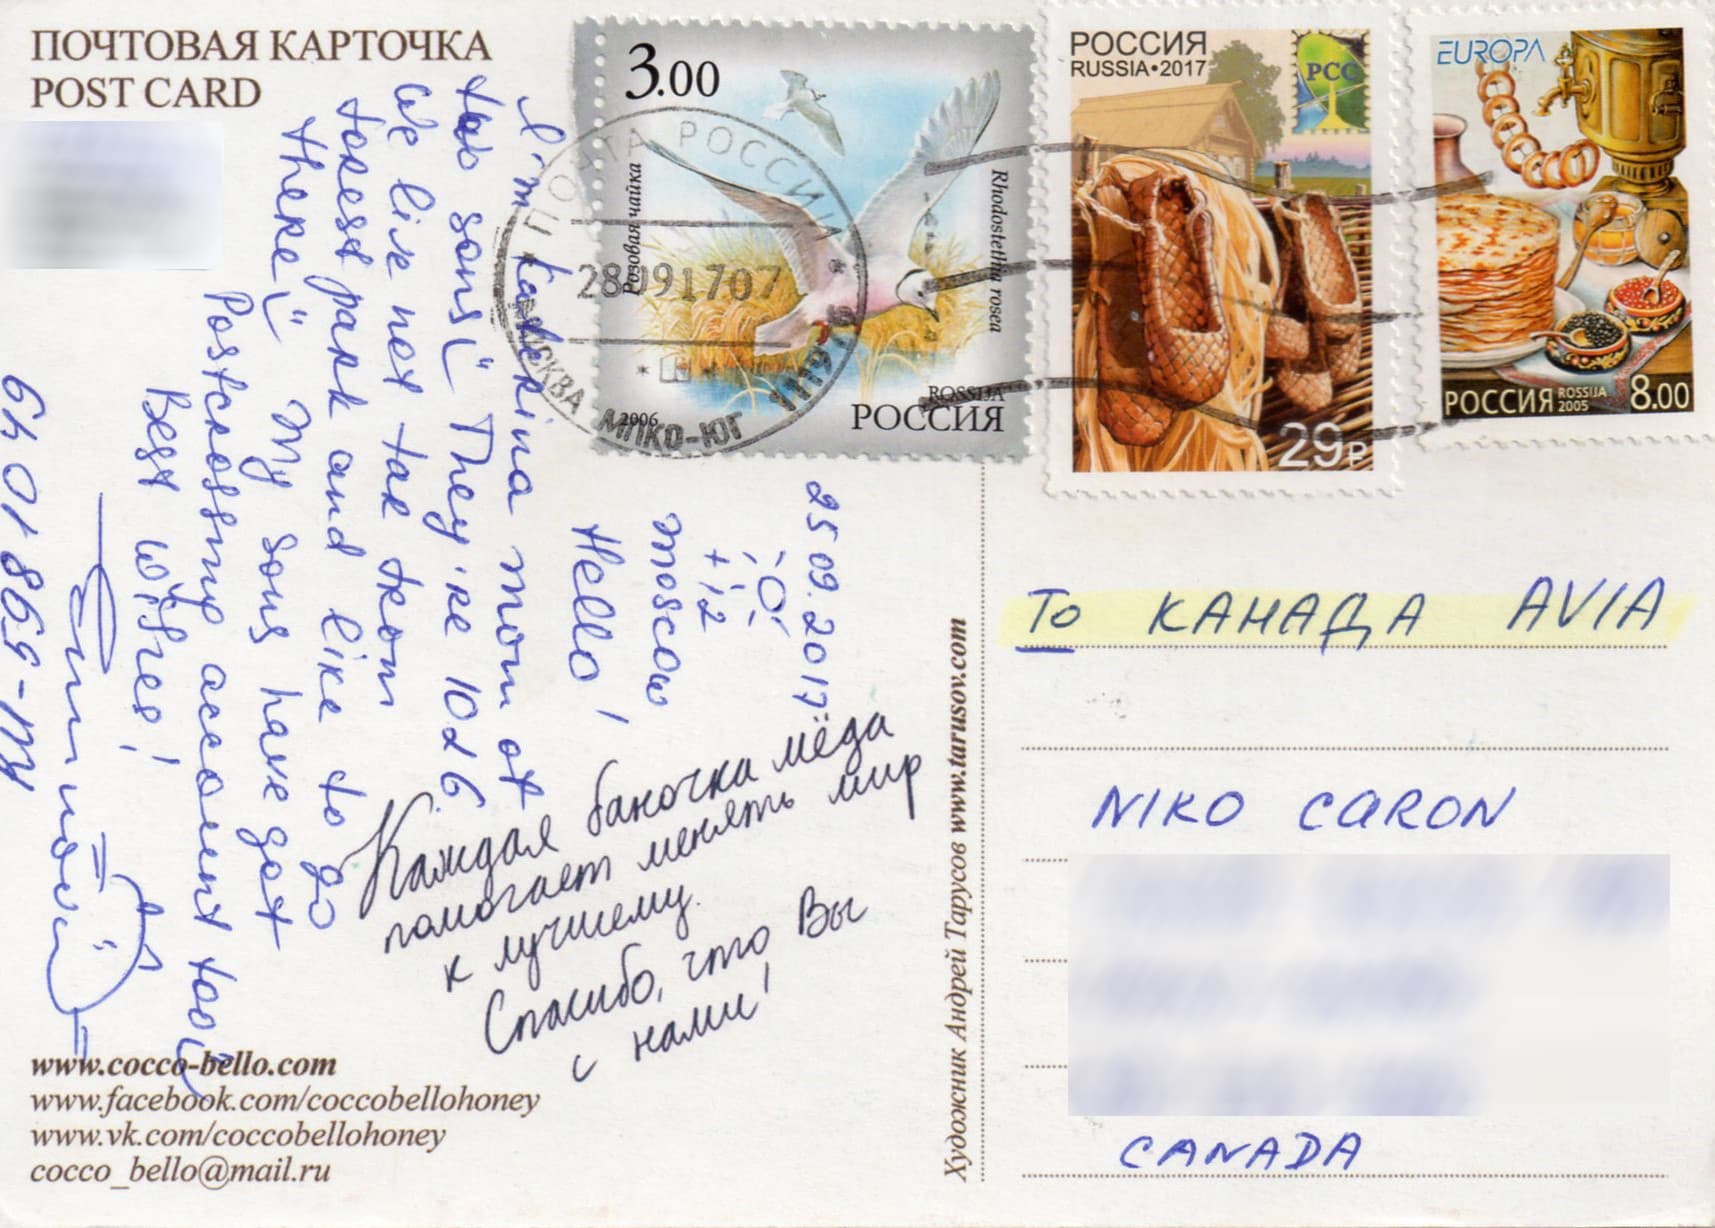 ПОЧТОВАЯ КАРТОЧКА
POST CARD
3.00
Розовая чайка
Rhodostethia rosea
2006
ROSSIJA
РОССИЯ
ПОЧТА РОССИИ
28091707
МОСКВА МПКО-ЮГ
РОССИЯ
RUSSIA•2017
РСС
29₽
EUROPA
РОССИЯ ROSSIJA
2005
8.00
25 09.2017
+12
Moscow
Hello!
I'm
mom of
two sons They're 10 & 6
We live not far from
forest park and like to go
there My sons have got
Postcrossing account too
Best wishes!
Каждая баночка мёда
помогает менять мир
к лучшему.
Спасибо, что Вы
с нами!
www.cocco-bello.com
www.facebook.com/coccobellohoney
www.vk.com/coccobellohoney
cocco_bello@mail.ru
Художник Андрей Тарусов www.tarusov.com
To КАНАДА AVIA
NIKO CARON
CANADA